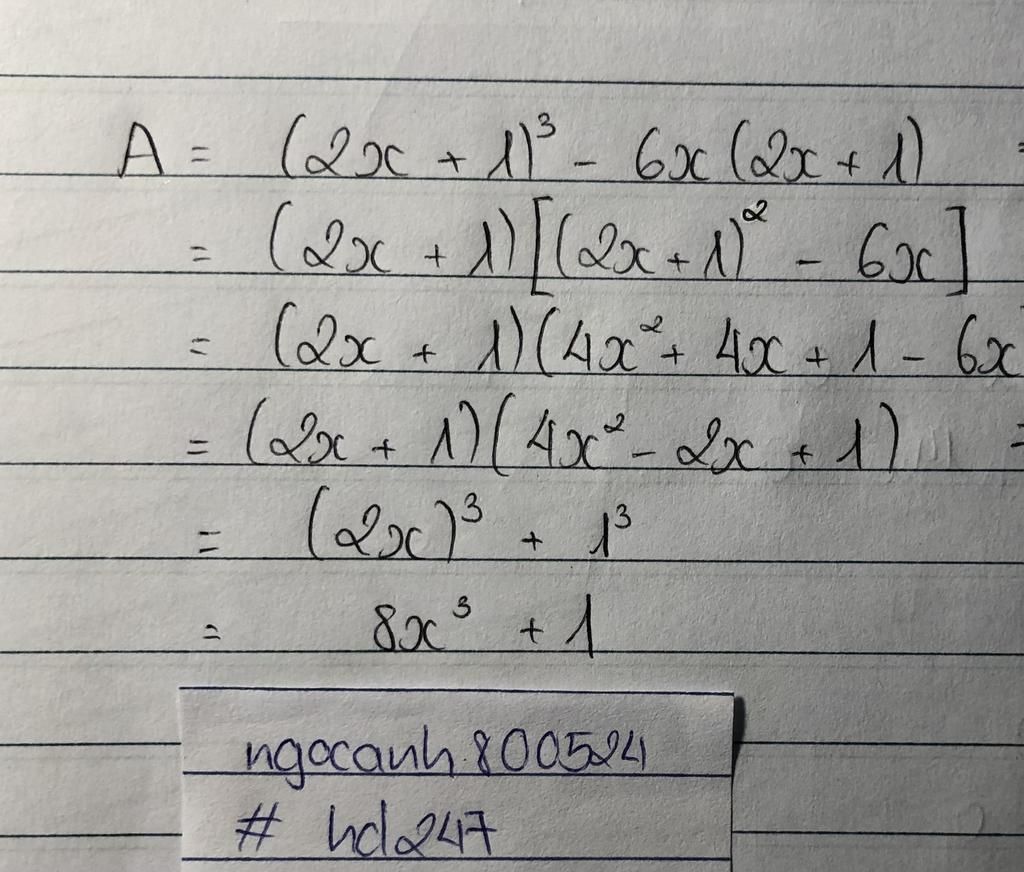 A = (2x + 1)³ - 6x (2x + 1) =
= (2x + 1) [(2x + 1)² - 6x]
= (2x + 1) (4x² + 4x + 1 - 6x
= (2x + 1) (4x² - 2x + 1) =
= (2x)³ + 1³
= 8x³ + 1
ngocanh800524
# hd247